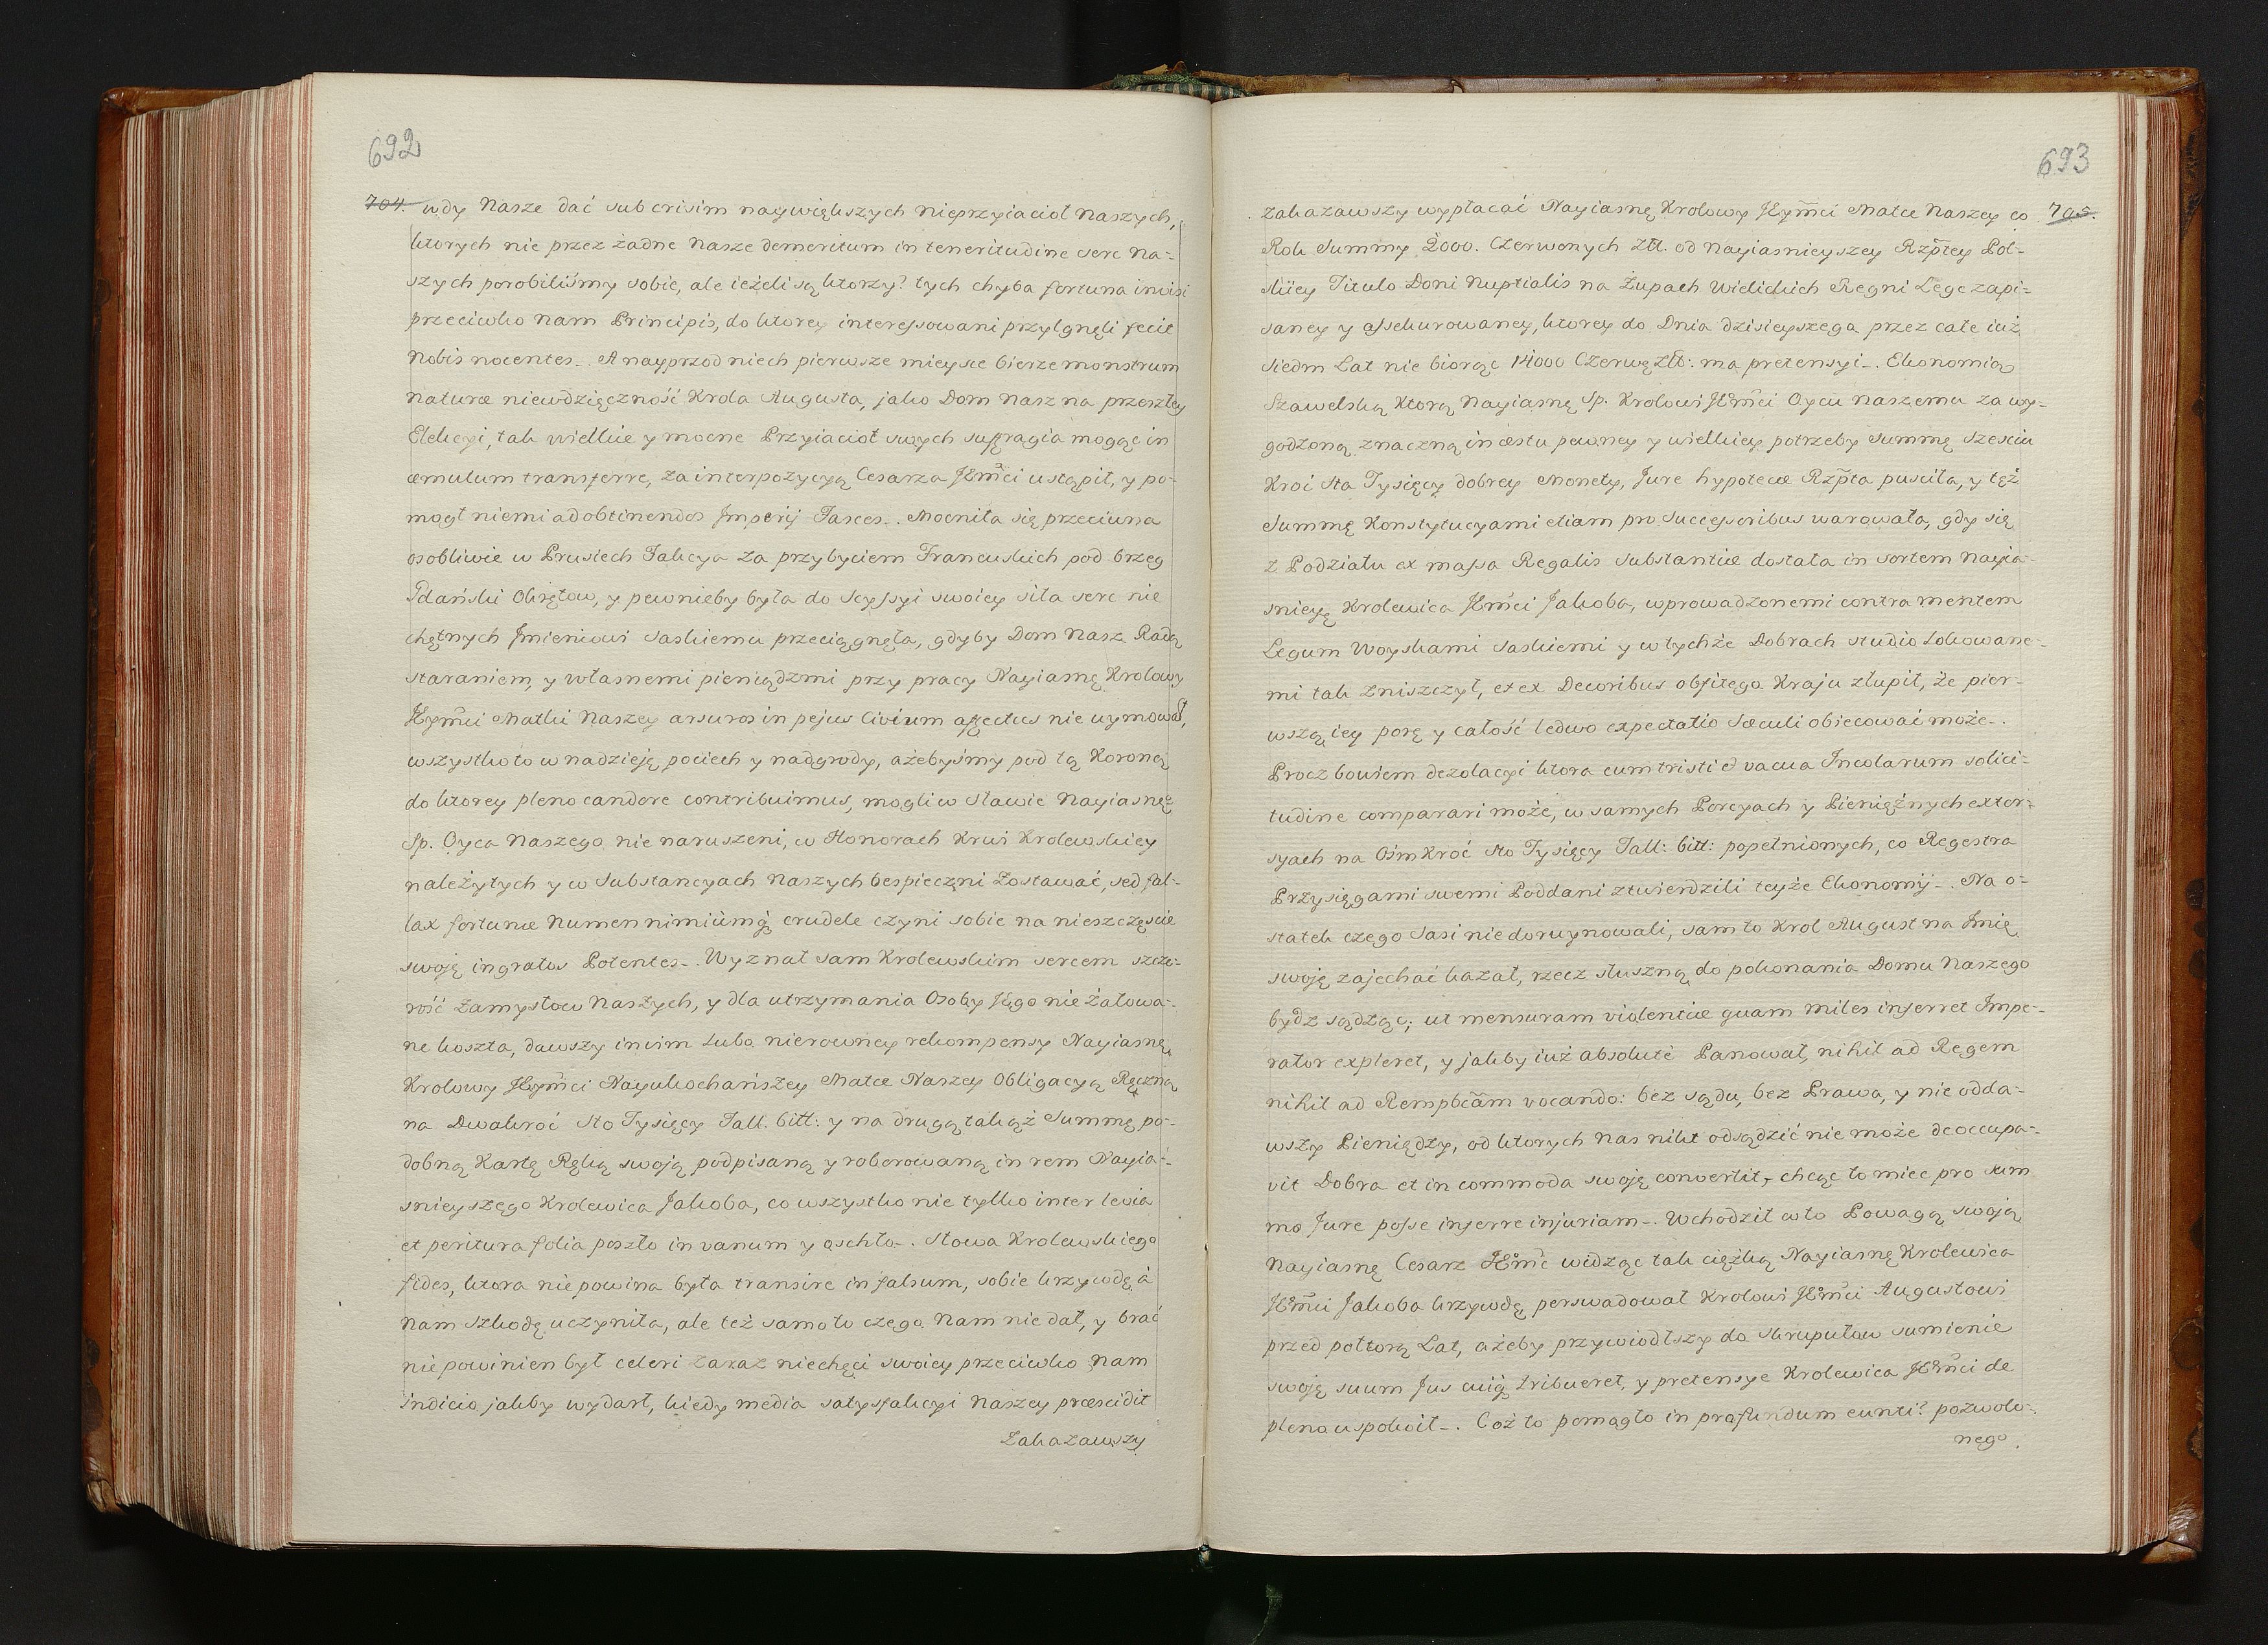 692
704. wdy Nasze dać sub crisim naywiększych nieprzyiacioł Naszych,
ktorych nie przez żadne Nasze demeritum in teneritudine serc na-
szych porobiliśmy sobie, ale ieżeli są ktorzy? tych chyba fortuna invisi
przeciwko nam Principis, do ktorey interessowani przylgnęli fecit
Nobis nocentes. A nayprzod niech pierwsze mieysce bierze monstrum
naturæ niewdzięczność Krola Augusta, jako Dom Nasz na przeszłey
Elekcyi, tak wielkie y mocne Przyiacioł swych suffragia mogąc in
æmulum transferre, za interpozycyą Cesarza JKm̃ci ustąpił, y po-
mogł niemi ad obtinendos Imperij Fasces. Mocniła się przeciwna
osobliwie w Prusiech Fakcya za przybyciem Francuskich pod brzeg
Gdański Okrętow, y pewnieby była do Scyssyi swoiey siła serc nie
chętnych Imieniowi Saskiemu przeciągnęła, gdyby Dom Nasz Radą
staraniem, y własnemi pieniądzmi przy pracy Nayiasnę Krolowy
JKym̃ci Matki Naszey arsuros in pejus Civium affectus nie uymował,
wszystko to w nadzieję pociech y nadgrody, ażebyśmy pod tą Koroną
do ktorey pleno candore contribuimus, mogli w Sławie Nayiasnę
Sp. Oyca Naszego nie naruszeni, w Honorach Krwi Krolewskiey
należytych y w Substancyach Naszych bespieczni Zostawać, sed fal-
lax fortunæ Numen nimiùmq; crudele czyni sobie na nieszczęscie
swoję ingratos Potentes. Wyznał sam Krolewskim sercem szcze-
rość Zamysłow Naszych, y dla utrzymania Osoby Jego nie żałowa-
ne koszta, dawszy in vim lubo nierowney rekompensy Nayiasnę
Krolowy JKym̃ci Nayukochańszey Matce Naszey Obligacyą Ręczną
na Dwakroć Sto Tysięcy Tall. bitt: y na drugą takąż Summę po-
dobną Kartę Ręką swoją podpisaną y roborowaną in rem Nayia-
snieyszego Krolewica Jakoba, co wszystko nie tylko inter levia
et peritura folia poszło in vanum y oschło. Słowa Krolewskiego
fides, ktora nie powina była transire in falsum, sobie krzywdę à
Nam szkodę uczyniła, ale też samo to czego Nam nie dał, y brać
nie powinien był celeri zaraz niechęci swoiey przeciwko Nam
indicio jakby wydarł, kiedy media satysfakcyi Naszey præscidit
Zakazawszy

693
Zakazawszy wypłacać Nayiasnę Krolowy JKym̃ci Matce Naszey co 705.
Rok Summy 2000. Czerwonych Złł. od Nayiasnieyszey Rzp̃tey Pol-
skiey Titulo Doni Nuptialis na Żupach Wielickich Regni Lege zapi-
saney y assekurowaney, ktorey do Dnia dzisieyszego przez całe iuż
siedm Lat nie biorąc 14000 Czerwę Złł: ma pretensyi. Ekonomią
Szawelską Ktorą Nayiasnę Sp. Krolowi JKm̃ci Oycu Naszemu za wy-
godzoną znaczną in æstu pewney y wielkiey potrzeby Summę Sześciu
Kroć Sto Tysięcy dobrey Monety, Jure hypotecæ Rzp̃ta puscila, y też
Summę Konstytucyami etiam pro Successoribus warowała, gdy się
z Podziału ex massa Regalis Substantiæ dostała in sortem Nayia-
snieyę Krolewica JKm̃ci Jakoba, wprowadzonemi contra mentem
Legum Woyskami Saskiemi y w tychże Dobrach studio lokowane-
mi tak zniszczył, et ex Decoribus obfitego Kraju złupił, że pier-
wszą iey porę y całość ledwo expectatio Sæculi obiecować może.
Procz bowiem dezolacyi ktora cum tristi et vacua Incolarum solici-
tudine comparari może, w samych Porcyach y Pieniężnych extor-
syach na Ośmkroć Sto Tysięcy Tall: bitt: popełnionych, co Regestra
Przysięgami swemi Poddani ztwierdzili teyże Ekonomij. Na o-
statek czego Sasi nie doruynowali, sam to Krol August na Imię
swoję zajechać kazał, rzecz słuszną do pokonania Domu Naszego
bydz sądząc; ut mensuram violentiæ quam miles inferret Impe-
rator expleret, y jakby iuż absolutè Panował, nihil ad Regem
nihil ad Rempbc̃am vocando: bez sądu, bez Prawa, y nie odda-
wszy Pieniędzy, od ktorych nas nikt odsądzić nie może deoccupa-
vit Dobra et in commoda swoję convertit, chcąc to miec pro sum
mo Jure posse inferre injuriam. Wchodził w to Powagą swoją
Nayiasnę Cesarz JKm̃c widząc tak ciężką Nayiasnę Krolewica
JKm̃ci Jakoba krzywdę perswadował Krolowi JKm̃ci Augustowi
przed połtorą Lat, ażeby przywiodłszy do Skrupułow sumienie
swoję suum Jus cuiq tribueret, y pretensye Krolewica JKm̃ci de
pleno uspokoił. Coż to pomogło in profundum eunti? pozwolo-
nego